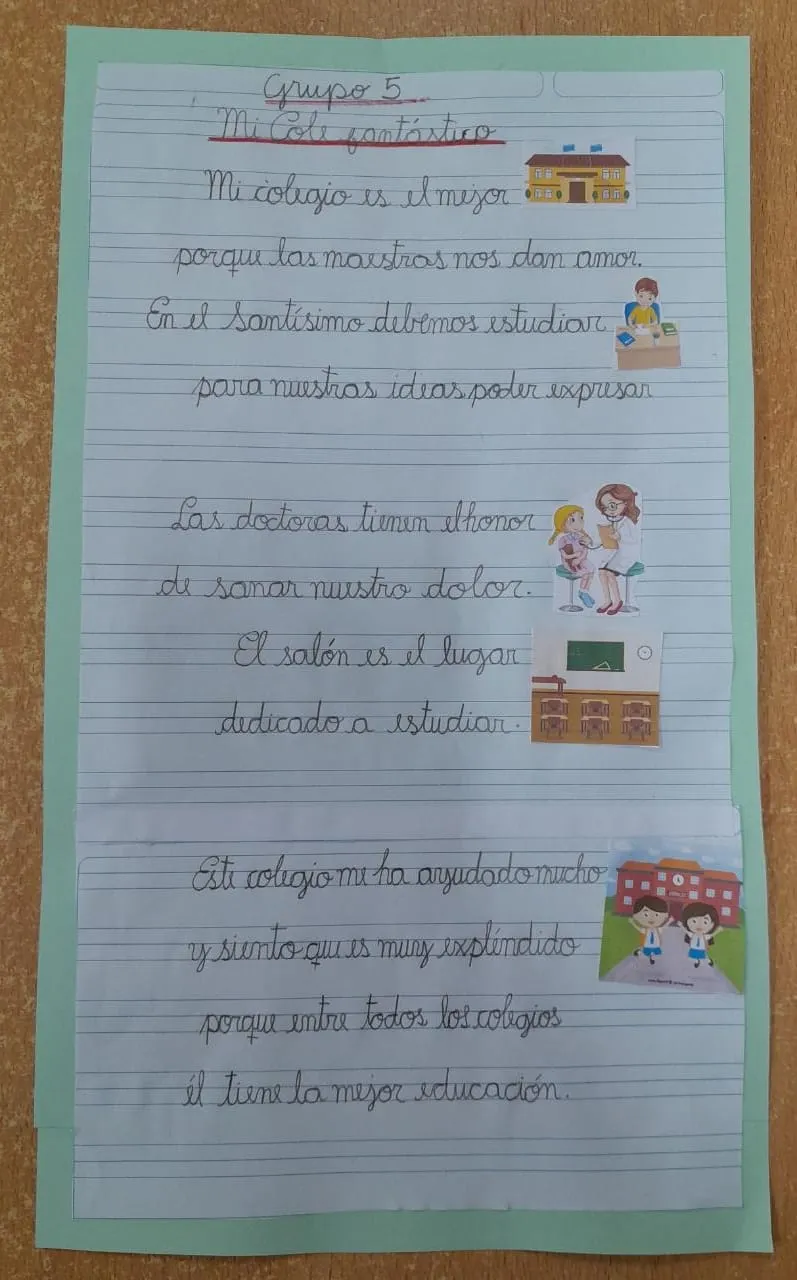 Grupo 5
Mi Cole fantástico
Mi colegio es el mejor
porque las maestras nos dan amor.
En el Santísimo debemos estudiar
para nuestras ideas poder expresar
Las doctoras tienen el honor
de sanar nuestro dolor.
El salón es el lugar
dedicado a estudiar.
Este colegio me ha ayudado mucho
y siento que es muy expléndido
porque entre todos los colegios
él tiene la mejor educación.